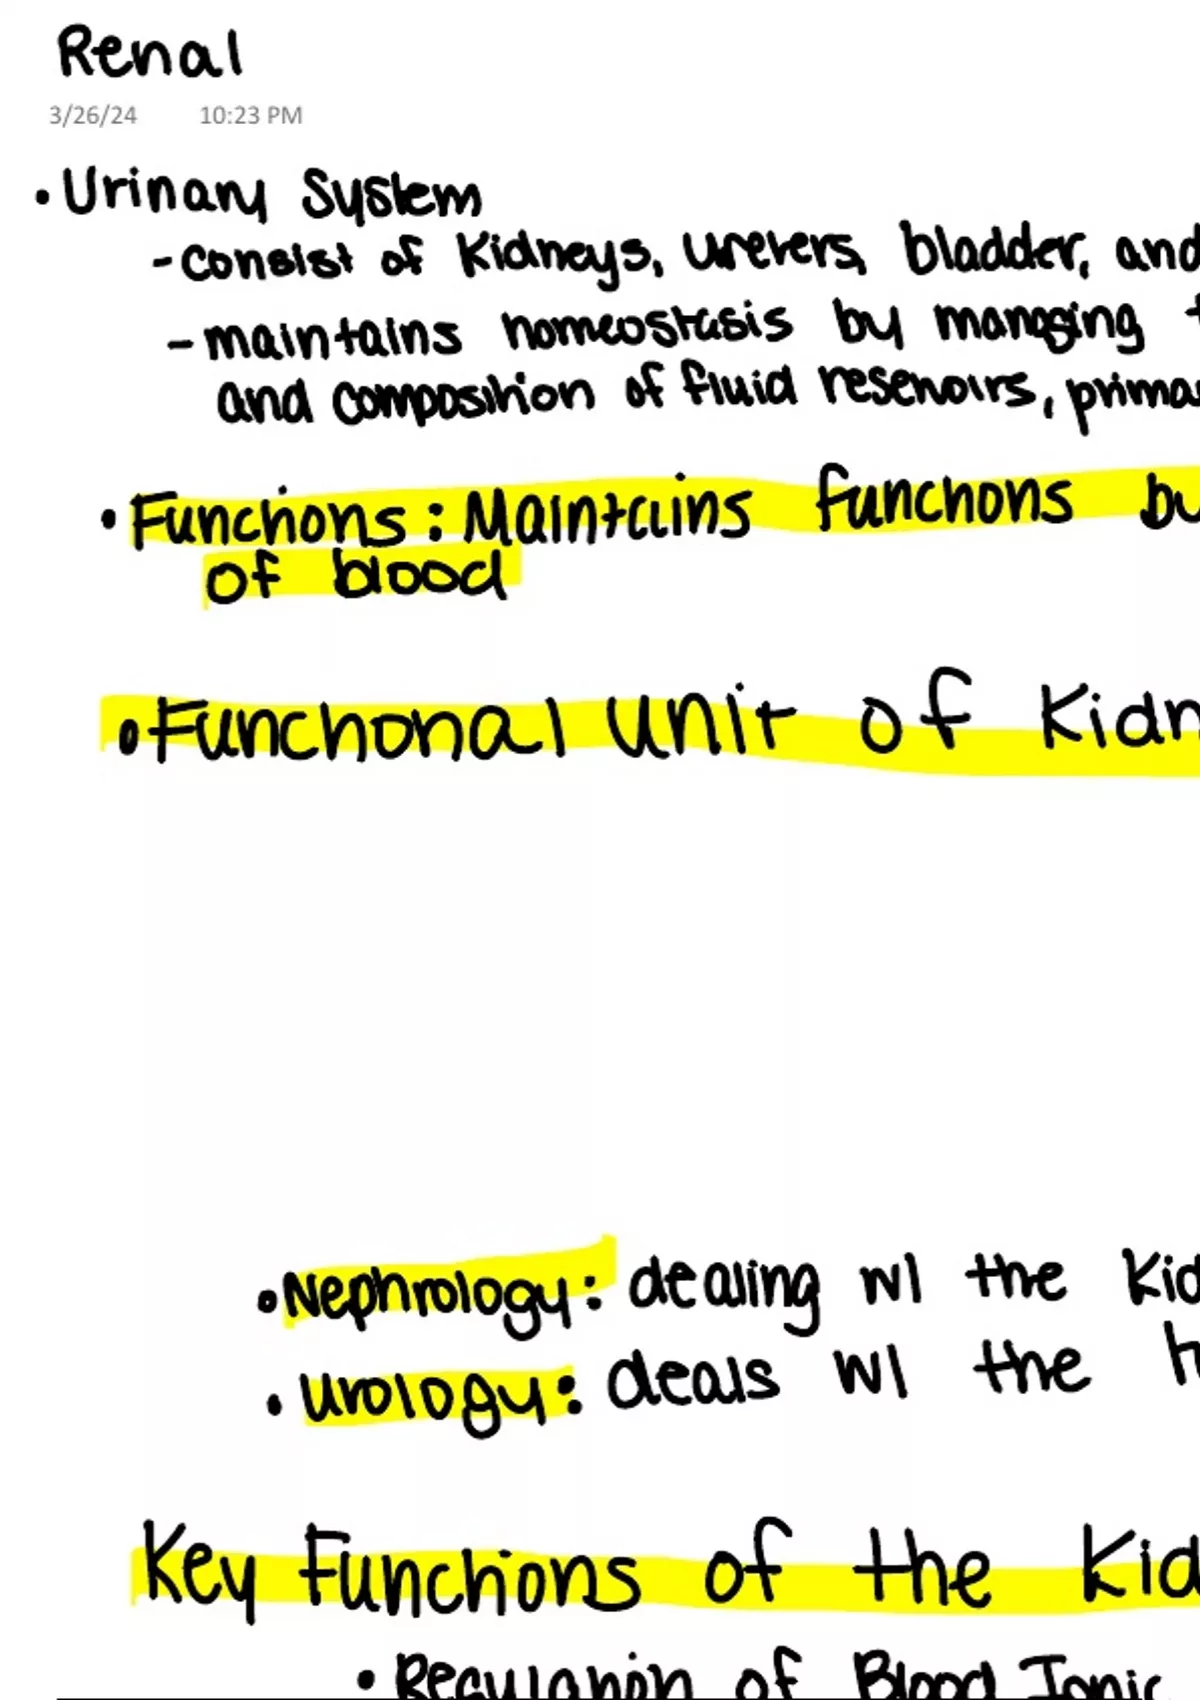 Renal
3/26/24 10:23 PM
• Urinary System
- consist of Kidneys, ureters, bladder, and
- maintains homeostasis by managing
and composition of fluid reservoirs,
• Functions: Maintains functions
of blood
• Functional Unit of
• Nephrology: dealing w/ the
• Urology: deals w/ the
Key Functions of the
• Regulation of Blood Ionic